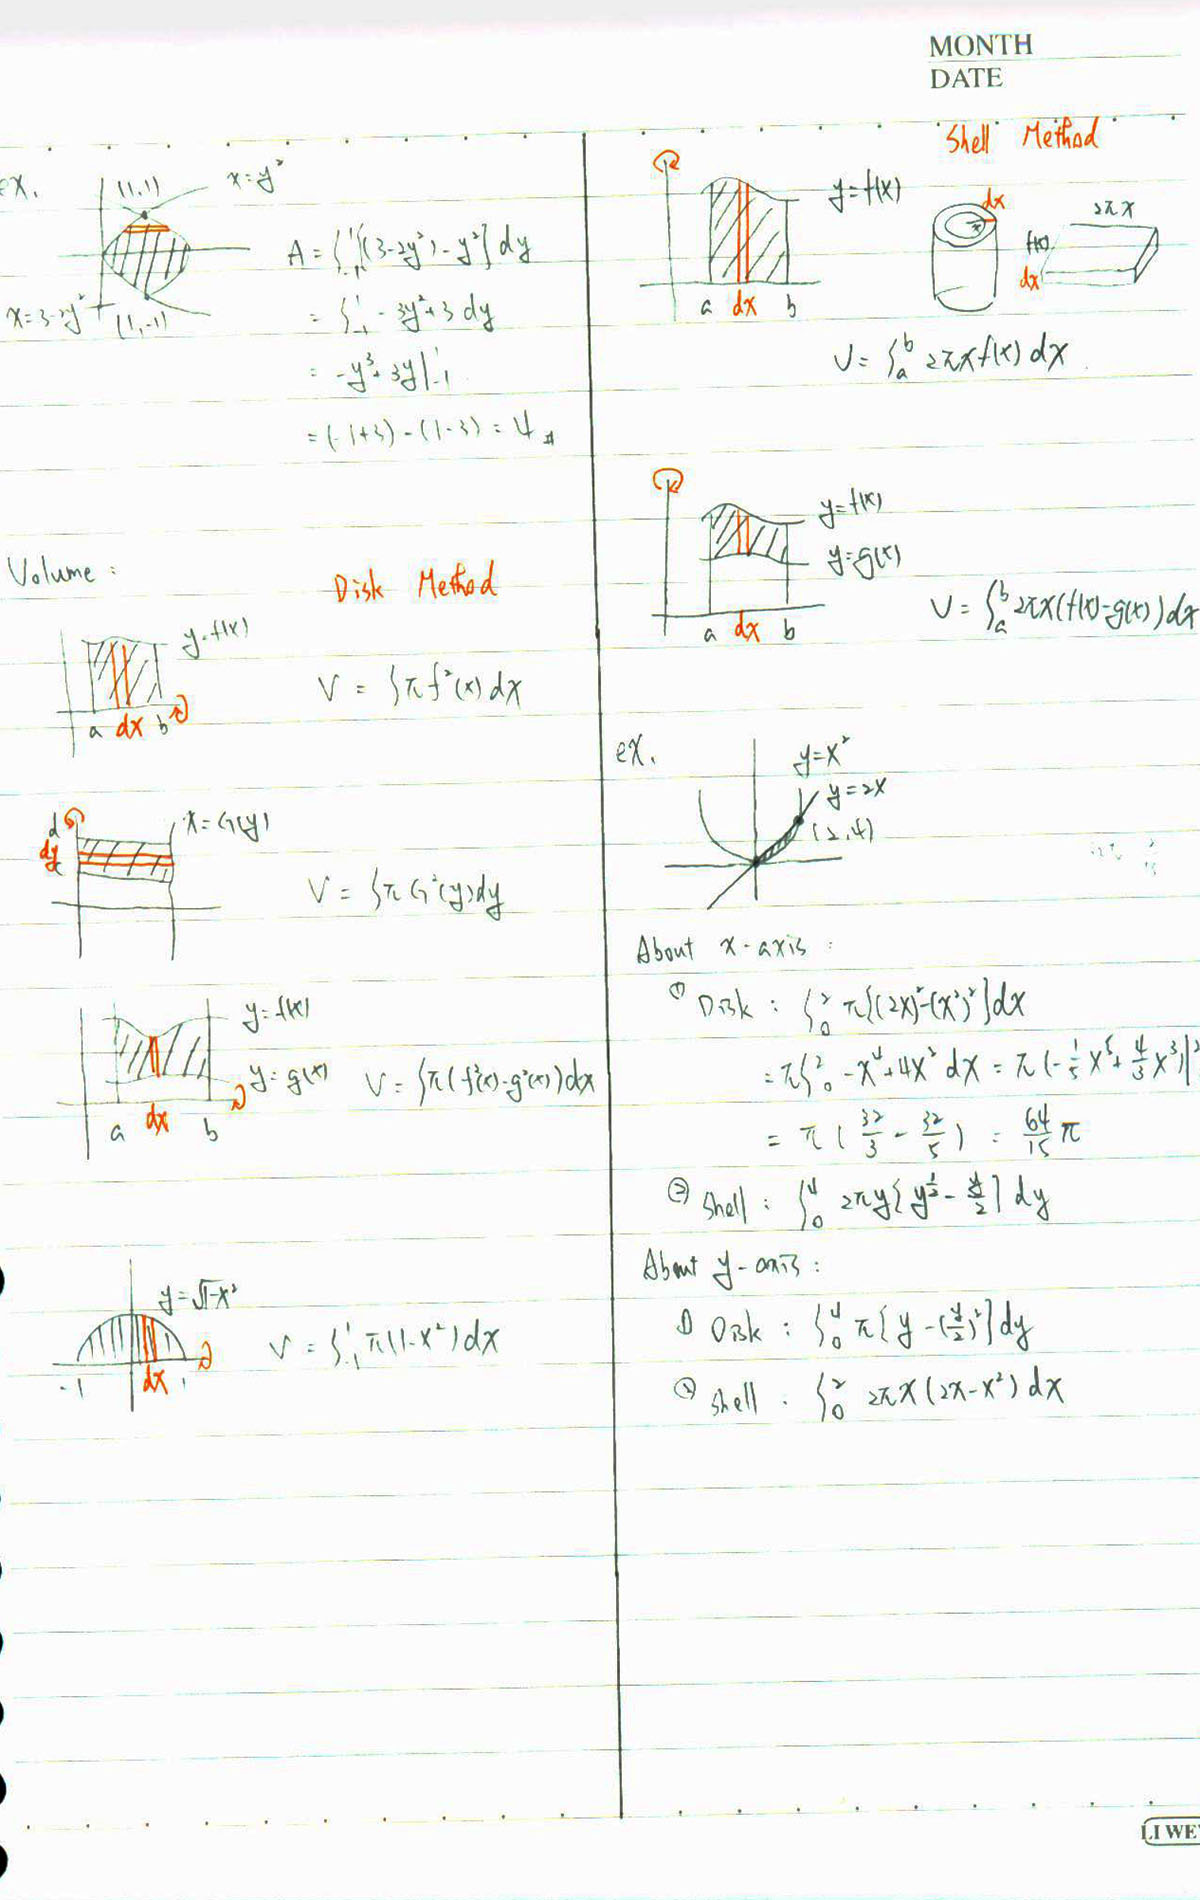 MONTH
DATE
ex.
(1,1)
x=y²
A = ∫₋₁¹[(3-2y²)-y²]dy
x=3-2y²
(1,-1)
= ∫₋₁¹ -3y²+3 dy
= -y³+3y|₋₁¹
=(-1+3)-(1-3)=4 #
Volume :
Disk Method
y=f(x)
V = ∫π f²(x) dx
a dx b
d
dy
c
x=G(y)
V = ∫π G²(y)dy
y=f(x)
y=g(x)
V=∫π(f²(x)-g²(x))dx
a dx b
y=√1-x²
V = ∫₋₁¹ π(1-x²)dx
-1 dx 1
Shell Method
y=f(x)
dx
x
2πx
f(x)
dx
a dx b
V= ∫ₐᵇ 2πxf(x) dx
y=f(x)
y=g(x)
V= ∫ₐᵇ 2πx(f(x)-g(x))dx
a dx b
ex.
y=x²
y=2x
(2,4)
About x-axis :
① Disk : ∫₀² π[(2x)²-(x²)²]dx
=π∫₀² -x⁴+4x² dx = π(-1/5 x⁵+4/3 x³)|²
= π(32/3 - 32/5) = 64/15 π
② Shell : ∫₀⁴ 2πy[y^½ - y/2] dy
About y-axis :
① Disk : ∫₀⁴ π[y-(y/2)²]dy
② Shell : ∫₀² 2πx(2x-x²)dx
LI WE